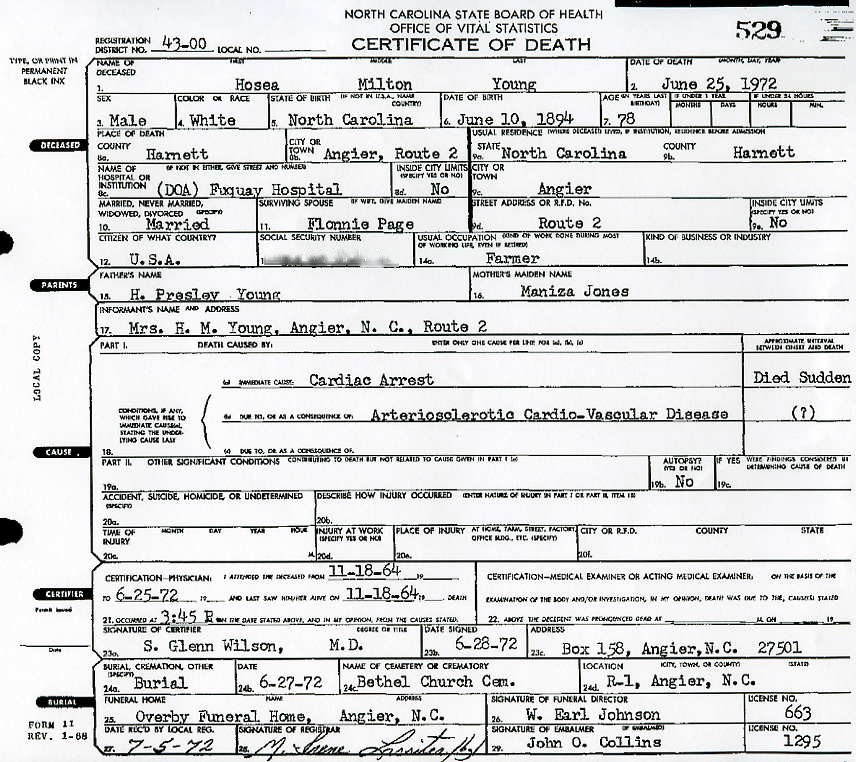 NORTH CAROLINA STATE BOARD OF HEALTH
OFFICE OF VITAL STATISTICS
CERTIFICATE OF DEATH
529
REGISTRATION DISTRICT NO. 43-00 LOCAL NO.
TYPE, OR PRINT IN PERMANENT BLACK INK
NAME OF DECEASED FIRST MIDDLE LAST DATE OF DEATH (MONTH, DAY, YEAR)
1. Hosea Milton Young 2. June 25, 1972
SEX COLOR OR RACE STATE OF BIRTH (IF NOT IN U.S.A., NAME COUNTRY) DATE OF BIRTH AGE (IN YEARS LAST BIRTHDAY) IF UNDER 1 YEAR MONTHS DAYS IF UNDER 24 HOURS HOURS MIN.
3. Male 4. White 5. North Carolina 6. June 10, 1894 7. 78
DECEASED
PLACE OF DEATH USUAL RESIDENCE (WHERE DECEASED LIVED, IF INSTITUTION, RESIDENCE BEFORE ADMISSION)
COUNTY CITY OR TOWN STATE COUNTY
8a. Harnett 8b. Angier, Route 2 9a. North Carolina 9b. Harnett
NAME OF HOSPITAL OR INSTITUTION (IF NOT IN EITHER, GIVE STREET AND NUMBER) INSIDE CITY LIMITS (SPECIFY YES OR NO) CITY OR TOWN
8c. (DOA) Fuquay Hospital 8d. No 9c. Angier
MARRIED, NEVER MARRIED, WIDOWED, DIVORCED (SPECIFY) SURVIVING SPOUSE (IF WIFE, GIVE MAIDEN NAME) STREET ADDRESS OR R.F.D. No. INSIDE CITY LIMITS (SPECIFY YES OR NO)
10. Married 11. Flonnie Page 9d. Route 2 9e. No
CITIZEN OF WHAT COUNTRY? SOCIAL SECURITY NUMBER USUAL OCCUPATION (KIND OF WORK DONE DURING MOST OF WORKING LIFE, EVEN IF RETIRED) KIND OF BUSINESS OR INDUSTRY
12. U.S.A. 14a. Farmer 14b.
PARENTS
FATHER'S NAME MOTHER'S MAIDEN NAME
15. H. Presley Young 16. Maniza Jones
INFORMANT'S NAME AND ADDRESS
17. Mrs. H. M. Young, Angier, N. C., Route 2
LOCAL COPY
PART I. DEATH CAUSED BY: ENTER ONLY ONE CAUSE PER LINE FOR (a), (b), (c) APPROXIMATE INTERVAL BETWEEN ONSET AND DEATH
(a) IMMEDIATE CAUSE: Cardiac Arrest Died Sudden
CONDITIONS, IF ANY, WHICH GAVE RISE TO IMMEDIATE CAUSE(a), STATING THE UNDERLYING CAUSE LAST
(b) DUE TO, OR AS A CONSEQUENCE OF: Arteriosclerotic Cardio-Vascular Disease (?)
CAUSE
18. (c) DUE TO, OR AS A CONSEQUENCE OF:
PART II. OTHER SIGNIFICANT CONDITIONS CONTRIBUTING TO DEATH BUT NOT RELATED TO CAUSE GIVEN IN PART I (a) AUTOPSY? (YES OR NO) IF YES WERE FINDINGS CONSIDERED IN DETERMINING CAUSE OF DEATH
19a. 19b. No 19c.
ACCIDENT, SUICIDE, HOMICIDE, OR UNDETERMINED (SPECIFY) DESCRIBE HOW INJURY OCCURRED (ENTER NATURE OF INJURY IN PART I OR PART II, ITEM 18)
20a. 20b.
TIME OF INJURY MONTH DAY YEAR HOUR INJURY AT WORK (SPECIFY YES OR NO) PLACE OF INJURY AT HOME, FARM, STREET, FACTORY, OFFICE BLDG., ETC. (SPECIFY) CITY OR R.F.D. COUNTY STATE
20c. M. 20d. 20e. 20f.
CERTIFIER
CERTIFICATION—PHYSICIAN: I ATTENDED THE DECEASED FROM 11-18-64 19
TO 6-25-72 19 AND LAST SAW HIM/HER ALIVE ON 11-18-64 19 DEATH
21. OCCURRED AT 3:45 P M ON THE DATE STATED ABOVE, AND IN MY OPINION, FROM THE CAUSES STATED.
CERTIFICATION—MEDICAL EXAMINER OR ACTING MEDICAL EXAMINER: ON THE BASIS OF THE
EXAMINATION OF THE BODY AND/OR INVESTIGATION, IN MY OPINION, DEATH WAS DUE TO THE CAUSE(S) STATED
22. ABOVE THE DECEDENT WAS PRONOUNCED DEAD AT M. ON 19
Permit issued
Date
SIGNATURE OF CERTIFIER DEGREE OR TITLE DATE SIGNED ADDRESS
23a. S. Glenn Wilson, M.D. 23b. 6-28-72 23c. Box 158, Angier, N.C. 27501
BURIAL, CREMATION, OTHER (SPECIFY) DATE NAME OF CEMETERY OR CREMATORY LOCATION (CITY, TOWN, OR COUNTY) (STATE)
24a. Burial 24b. 6-27-72 24c. Bethel Church Cem. 24d. R-1, Angier, N.C.
BURIAL
FUNERAL HOME NAME ADDRESS SIGNATURE OF FUNERAL DIRECTOR LICENSE NO.
25. Overby Funeral Home, Angier, N.C. 26. W. Earl Johnson 663
FORM 11
REV. 1-68
DATE REC'D BY LOCAL REG. SIGNATURE OF REGISTRAR SIGNATURE OF EMBALMER (IF EMBALMED) LICENSE NO.
27. 7-5-72 28. M. Irene Lassiter 29. John O. Collins 1295